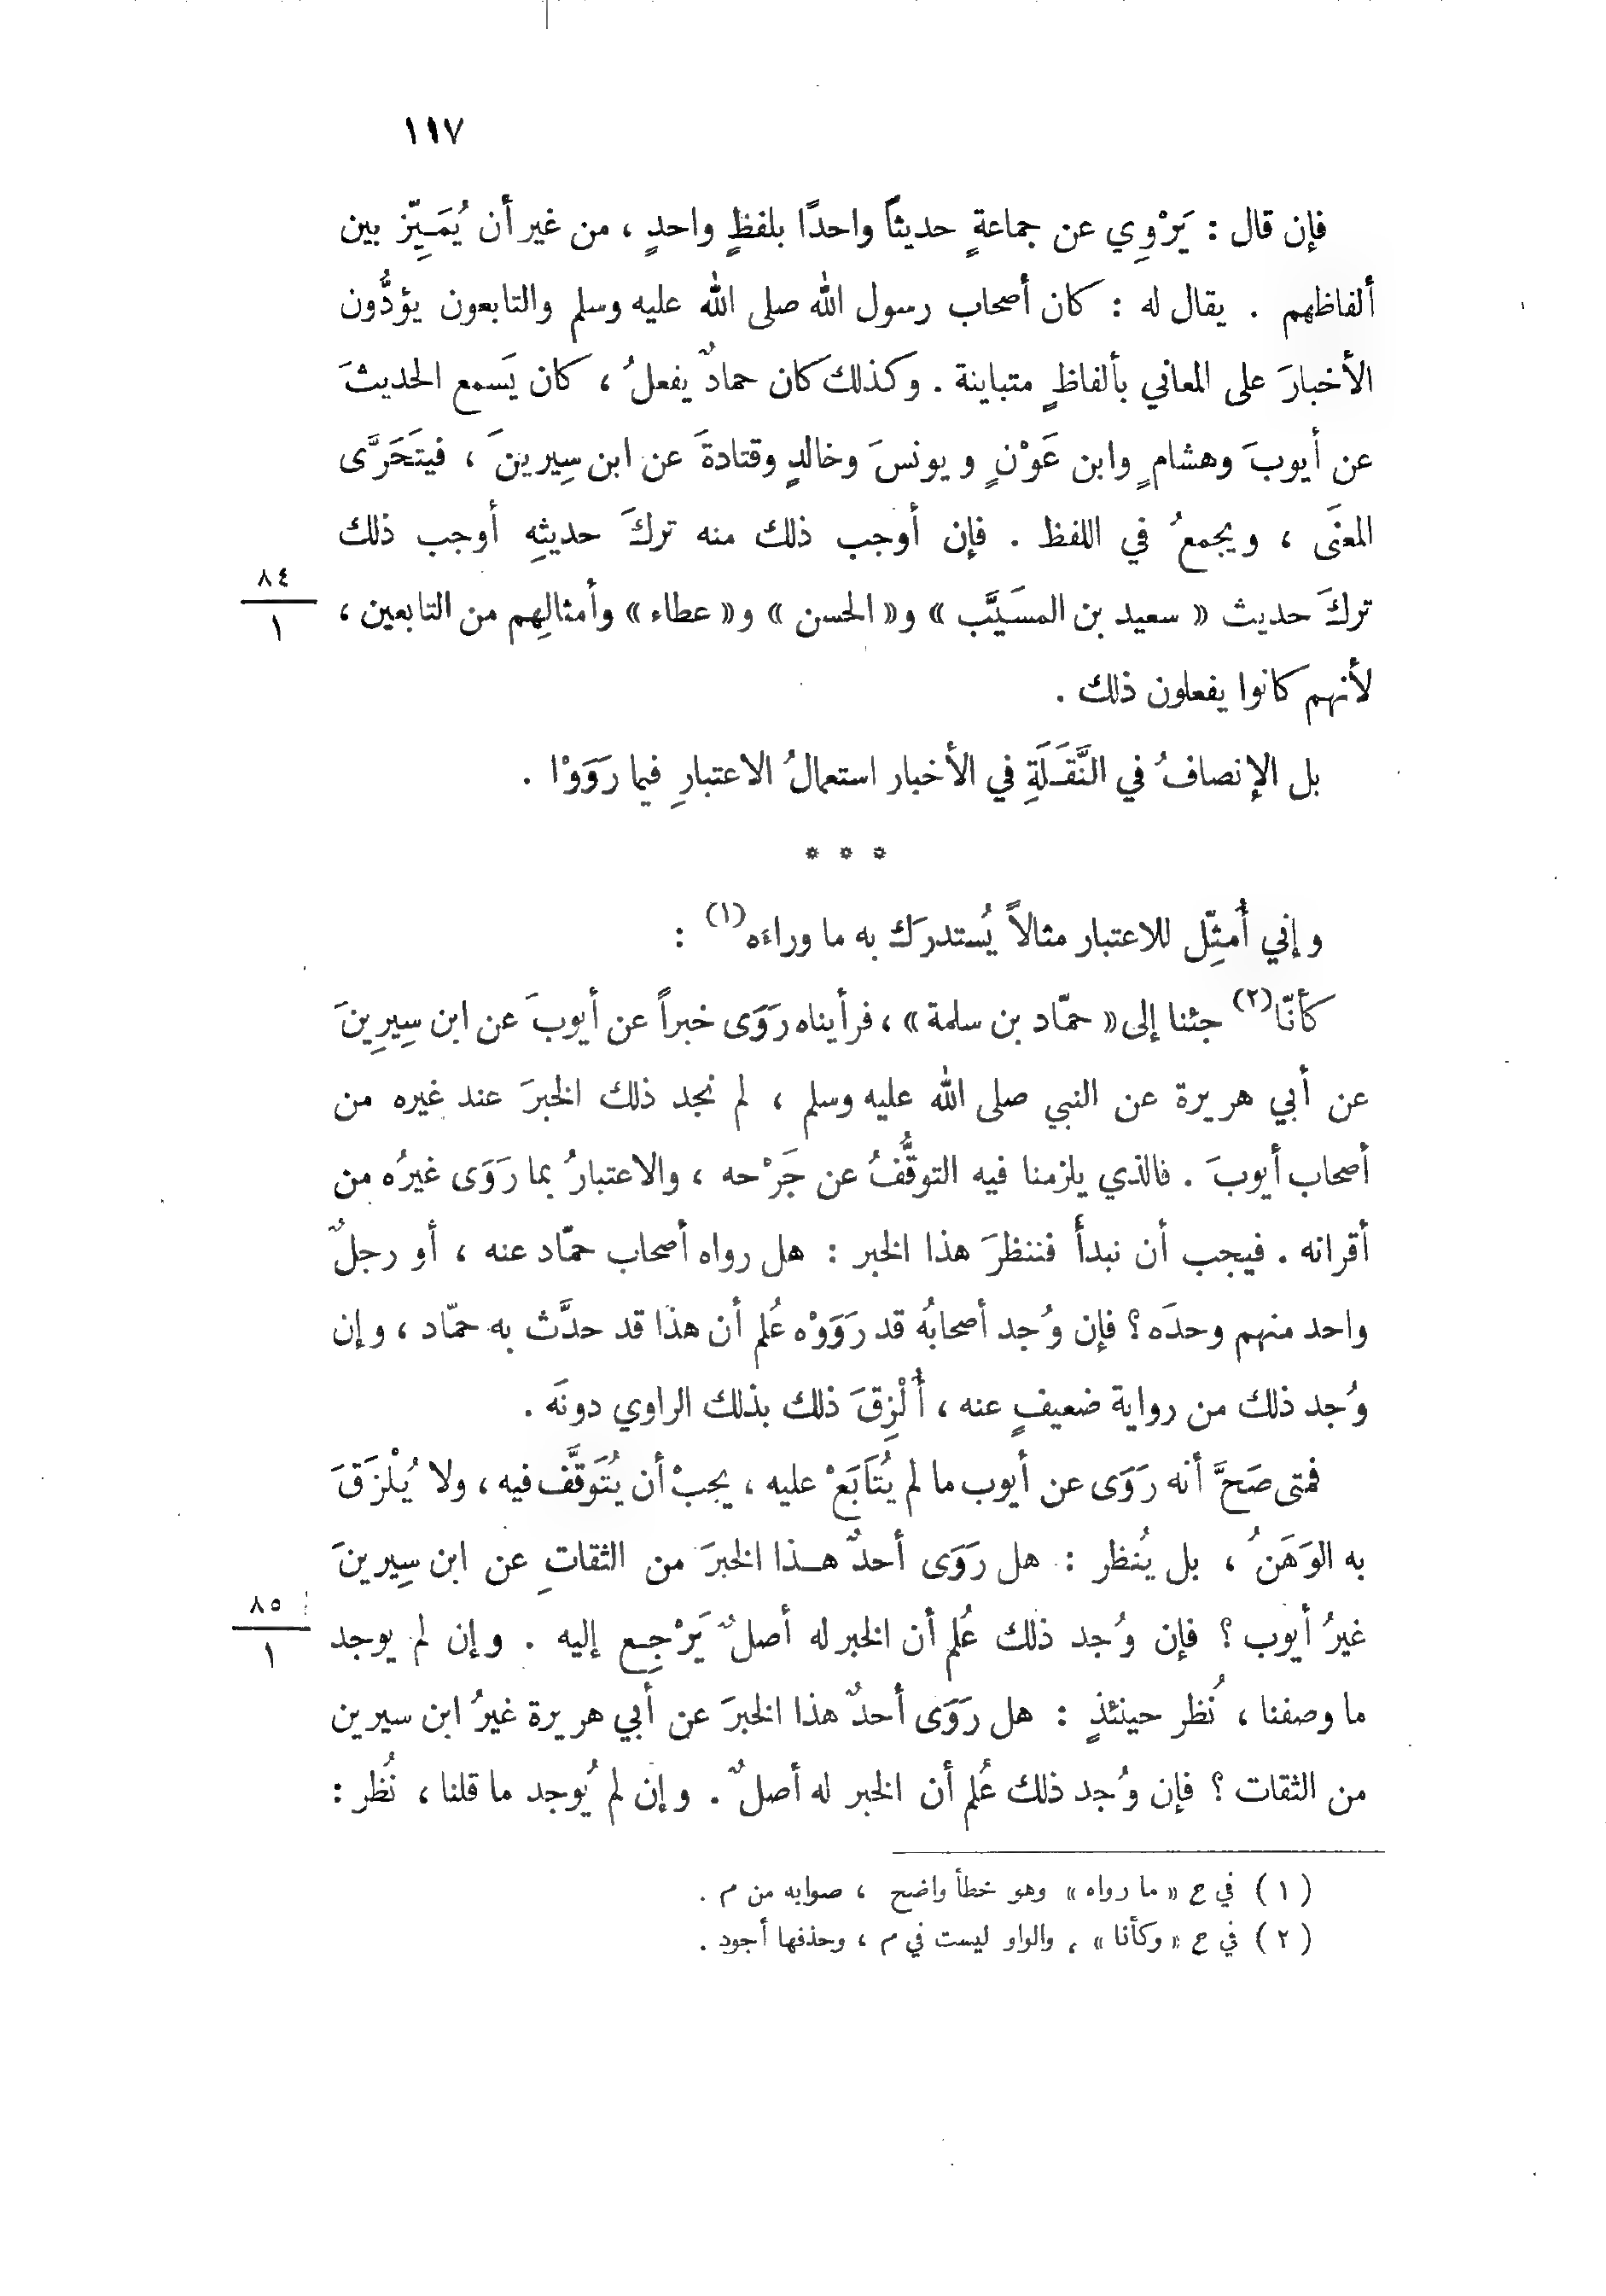 ١١٧
فإن قال : يَرْوِي عن جماعةٍ حديثاً واحدًا بلفظٍ واحدٍ ، من غير أن يُمَيِّز بين
ألفاظهم . يقال له : كان أصحاب رسول الله صلى الله عليه وسلم والتابعون يؤدُّون
الأخبارَ على المعاني بألفاظٍ متباينة . وكذلك كان حمادٌ يفعلُ ، كان يَسمع الحديثَ
عن أيوبَ وهشامٍ وابن عَوْنٍ ويونسَ وخالدٍ وقتادةَ عن ابن سِيرينَ ، فيتَحَرَّى
المعنَى ، ويجمعُ في اللفظ . فإن أوجب ذلك منه تركَ حديثِه أوجب ذلك
تركَ حديث « سعيد بن المسَيَّب » و« الحسن » و« عطاء » وأمثالِهم من التابعين ،
٨٤
١
لأنهم كانوا يفعلون ذلك .
بل الإنصافُ في النَّقَلَةِ في الأخبار استعمالُ الاعتبارِ فيما رَوَوْا .
* * *
وإني أُمثِّل للاعتبار مثالاً يُستدرَك به ما وراءَه(١) :
كأنّا(٢) جئنا إلى « حمّاد بن سلمة » ، فرأيناه رَوَى خبراً عن أيوبَ عن ابن سِيرِينَ
عن أبي هريرة عن النبي صلى الله عليه وسلم ، لم نجد ذلك الخبرَ عند غيره من
أصحاب أيوبَ . فالذي يلزمنا فيه التوقُّفُ عن جَرْحه ، والاعتبارُ بما رَوَى غيرُه من
أقرانه . فيجب أن نبدأ فننظرَ هذا الخبر : هل رواه أصحاب حمّاد عنه ، أو رجلٌ
واحد منهم وحدَه ؟ فإن وُجد أصحابُه قد رَوَوْه عُلم أن هذا قد حدَّث به حمّاد ، وإن
وُجد ذلك من رواية ضعيفٍ عنه ، أُلْزِقَ ذلك بذلك الراوي دونَه .
فمتى صَحَّ أنه رَوَى عن أيوب ما لم يُتَابَعْ عليه ، يجبْ أن يُتَوَقَّف فيه ، ولا يُلْزَقَ
به الوَهَنُ ، بل يُنظر : هل رَوَى أحدٌ هـذا الخبرَ من الثقاتِ عن ابن سِيرينَ
٨٥
١
غيرُ أيوب ؟ فإن وُجد ذلك عُلم أن الخبر له أصلٌ يَرْجِع إليه . وإن لم يوجد
ما وصفنا ، نُظر حينئذٍ : هل رَوَى أحدٌ هذا الخبرَ عن أبي هريرة غيرُ ابن سيرين
من الثقات ؟ فإن وُجد ذلك عُلم أن الخبر له أصلٌ . وإن لم يُوجد ما قلنا ، نُظر :
( ١ ) في ح « ما رواه » وهو خطأ واضح ، صوابه من م .
( ٢ ) في ح « وكأنا » ، والواو ليست في م ، وحذفها أجود .